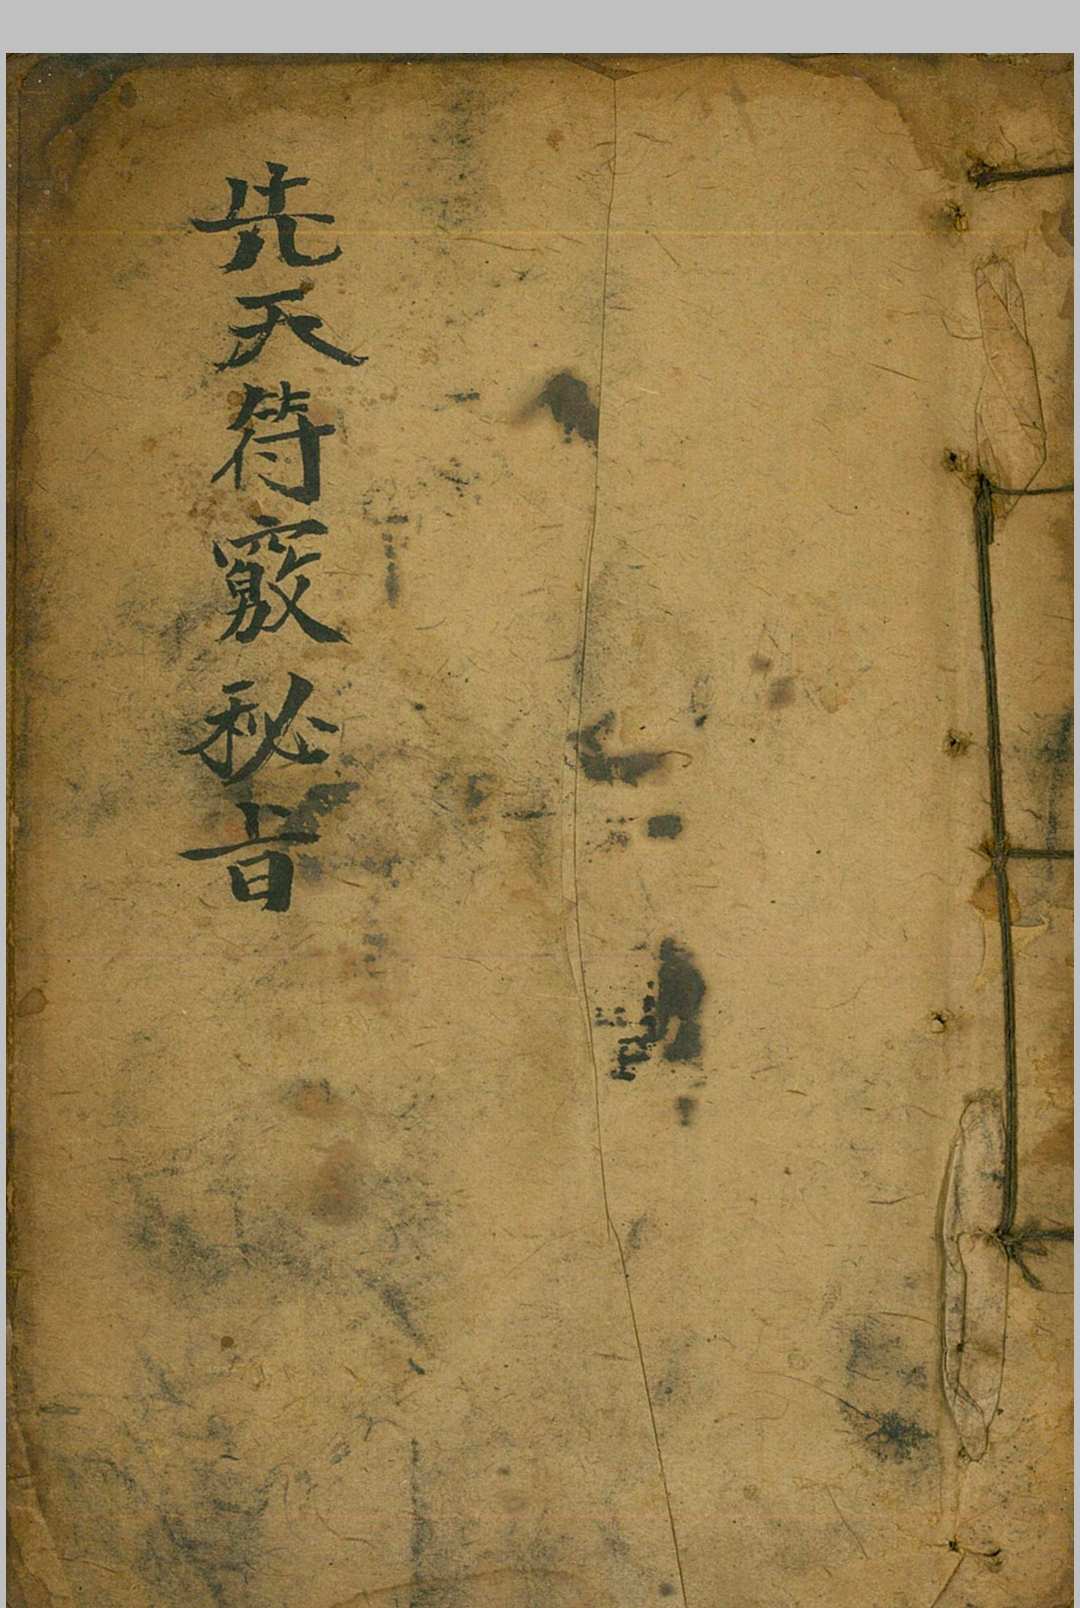 先天符竅秘旨